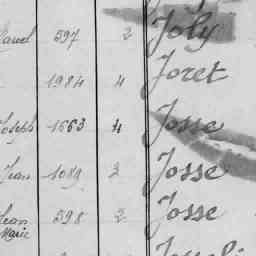 Marcel 597 2 Joly
1984 4 Joret
Joseph 1663 4 Josse
Jean 1089 2 Josse
Jean Marie 598 2 Josse